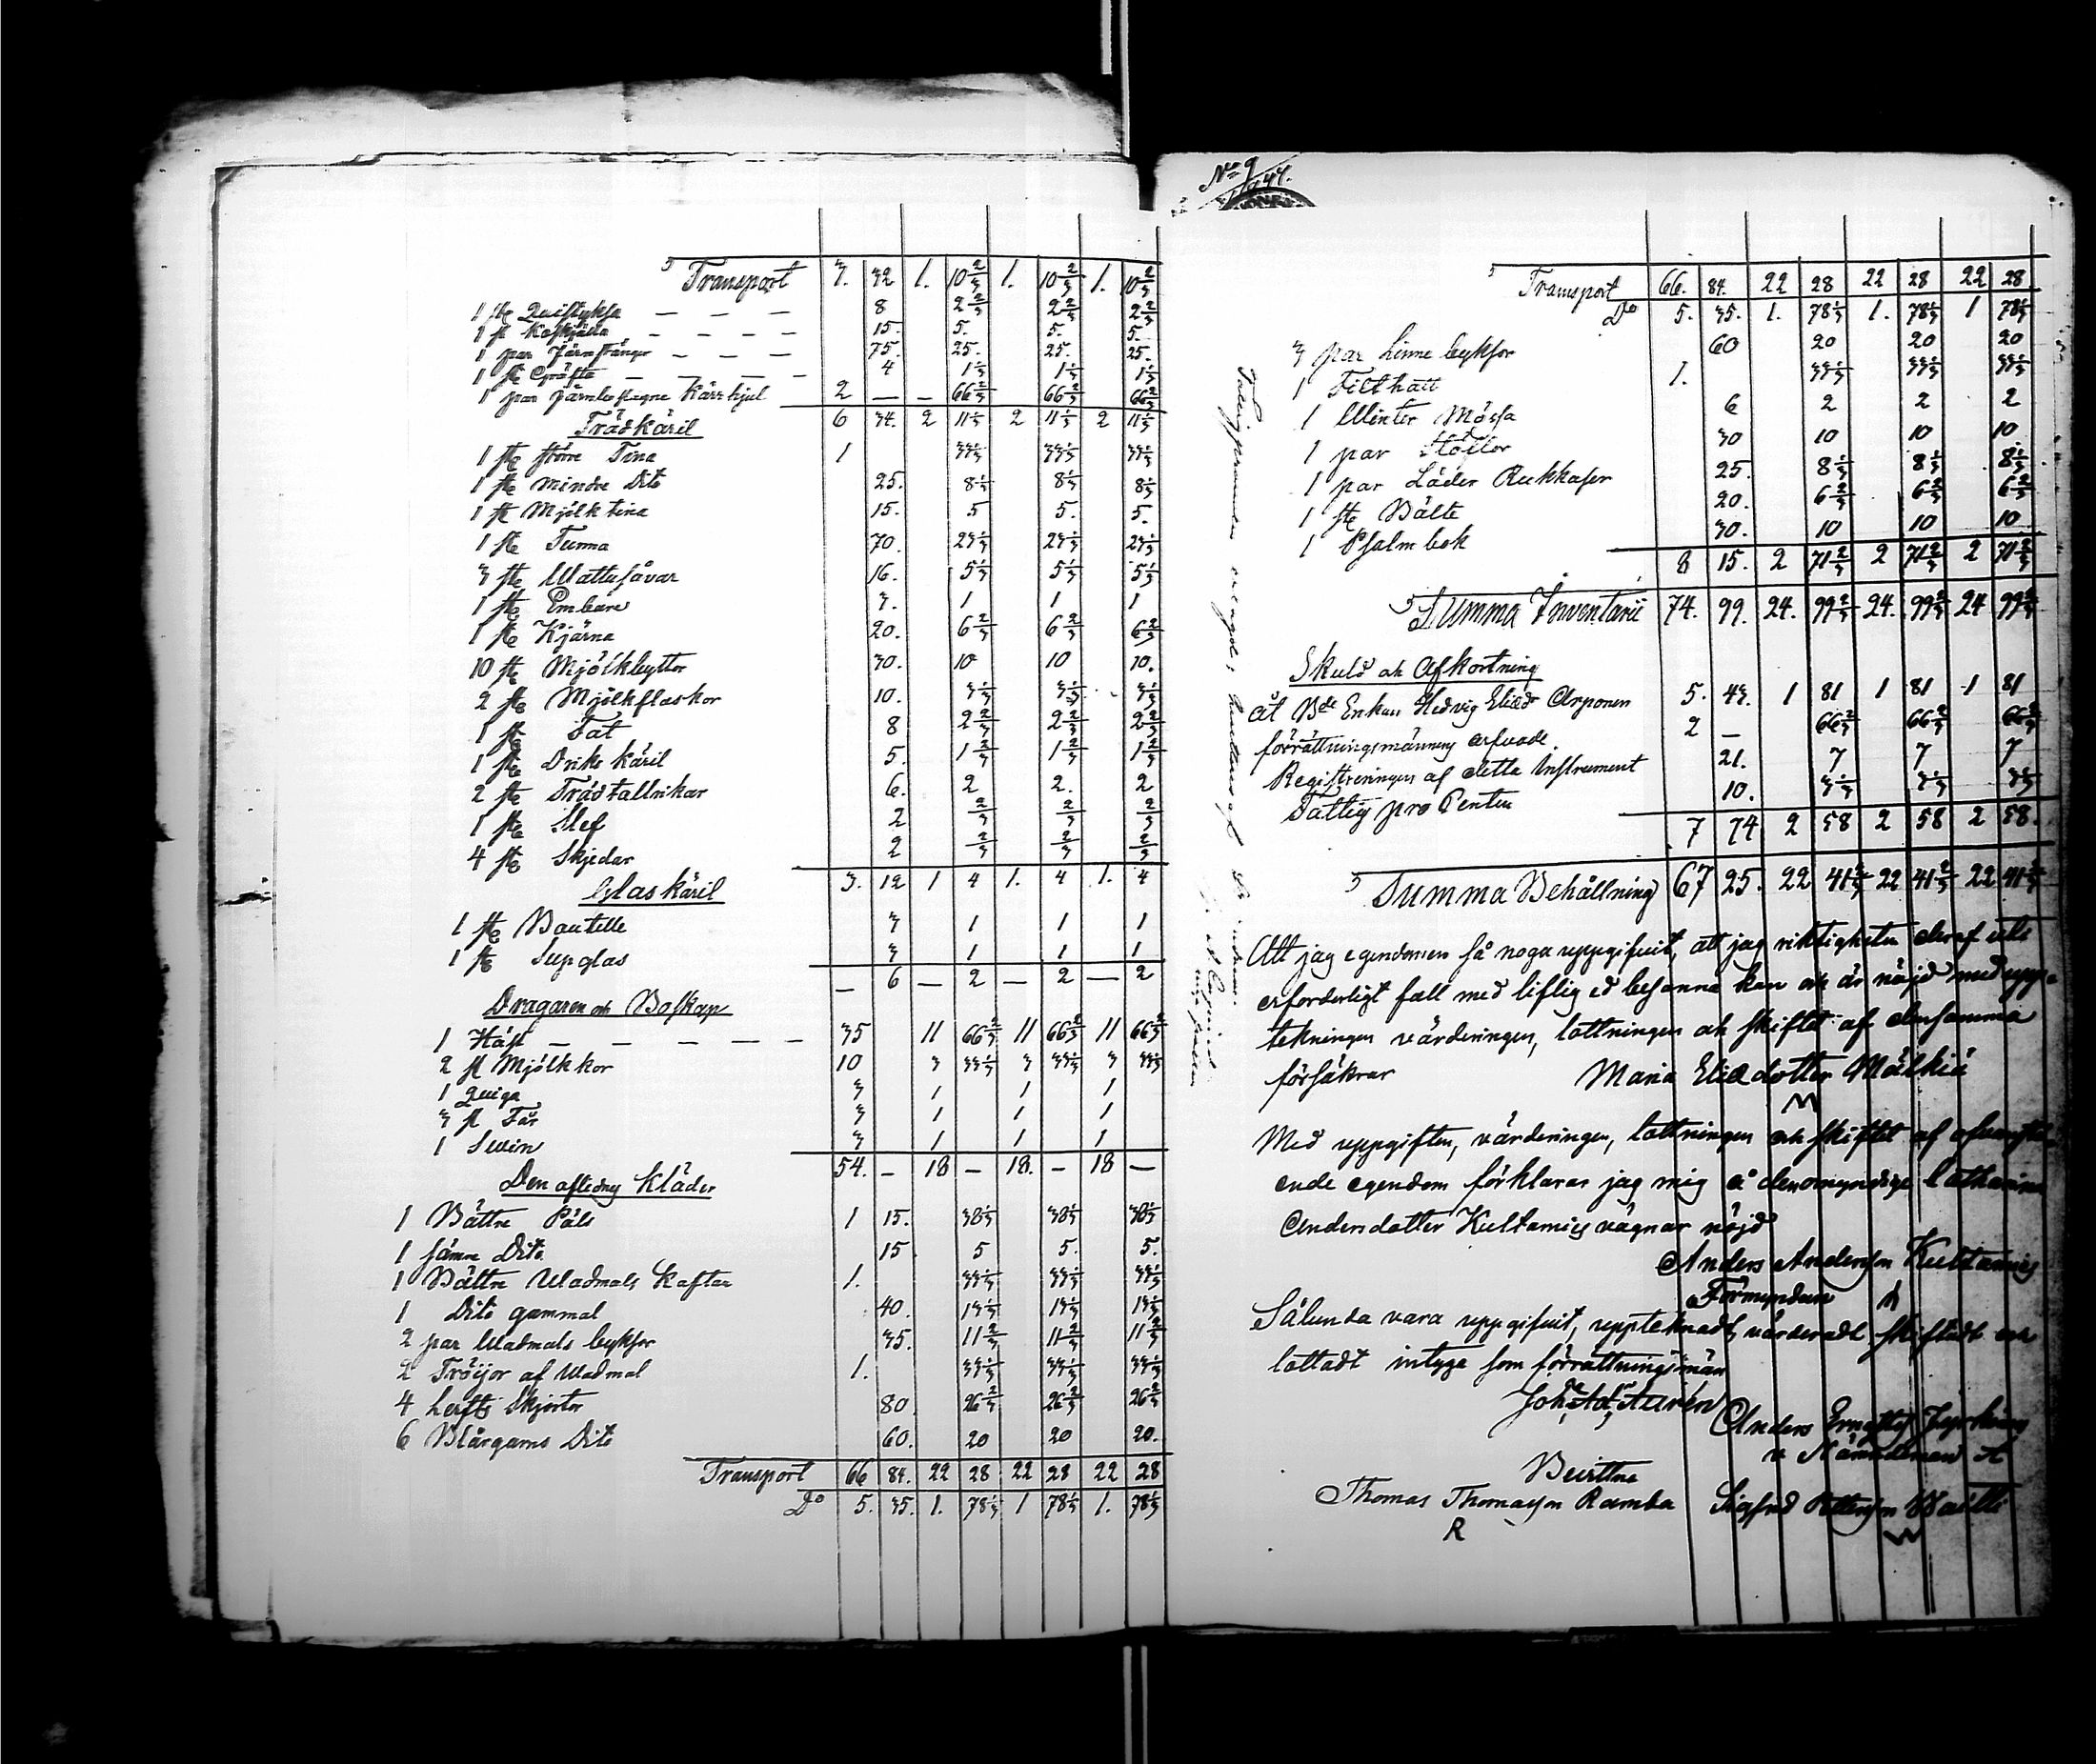 Transport 3. 32 1. 10 2/3 1. 10 2/3 1. 10 2/3
1 st Quistyksa — — — 8 2 2/3 2 2/3 2 2/3
1 st — — — — 15. 5. 5. 5.
1 par Järnstänger — — — 75. 25. 25. 25.
1 st Gräfta — — — — 4 1 1/3 1 1/3 1 1/3
1 par järnbeslagne Kärrhjul 2 — — 66 2/3 66 2/3 66 2/3
6 34. 2 11 1/3 2 11 1/3 2 11 1/3
Trädkäril
1 st större Tina 1 33 1/3 33 1/3 33 1/3
1 st mindre Dito 25. 8 1/3 8 1/3 8 1/3
1 st Mjölk tina 15. 5 5. 5.
1 st Tunna 70. 23 1/3 23 1/3 23 1/3
3 st Wattusåvar 16. 5 1/3 5 1/3 5 1/3
1 st Embare 3. 1 1 1
1 st Kjärna 20. 6 2/3 6 2/3 6 2/3
10 st Mjölkbyttor 30. 10 10 10.
2 st Mjölkflaskor 10. 3 1/3 3 1/3 3 1/3
1 st Fat 8 2 2/3 2 2/3 2 2/3
1 st Driks käril 5. 1 2/3 1 2/3 1 2/3
2 st Trädtallrikar 6. 2 2. 2
1 st Slef 2 2/3 2/3 2/3
4 st Skjedar 2 2/3 2/3 2/3
3. 12 1 4 1. 4 1. 4
Glaskäril
1 st Boutelle 3 1 1 1
1 st Supglas 3 1 1 1
— 6 — 2 — 2 — 2
Dragaren och Boskap
1 Häst — — — — — 35 11 66 2/3 11 66 2/3 11 66 2/3
2 st Mjölkkor 10 3 33 1/3 3 33 1/3 3 33 1/3
1 Quiga 3 1 1 1
3 st Får 3 1 1 1
1 Swin 3 1 1 1
54. — 18 — 18. — 18 —
Den aflednes Kläder
1 Bättre Päls 1 15. 38 1/3 38 1/3 38 1/3
1 sämre Dito 15 5 5. 5.
1 Bättre Wadmals Kaftan 1. 33 1/3 33 1/3 33 1/3
1 Dito gammal 40. 13 1/3 13 1/3 13 1/3
2 par Wadmals byksor 35. 11 2/3 11 2/3 11 2/3
2 Tröijor af Wadmal 1. 33 1/3 33 1/3 33 1/3
4 Lerfts Skjortor 80. 26 2/3 26 2/3 26 2/3
6 Blårgarns Dito 60. 20 20 20.
Transport 66 84. 22 28 22 28 22 28
Do 5. 35. 1. 78 1/3 1 78 1/3 1. 78 1/3
No 9
Transport 66. 84. 22 28 22 28 22 28
Do 5. 35. 1. 78 1/3 1. 78 1/3 1 78 1/3
3 par Linne byksor 60 20 20 20
1 Filthatt 1. 33 1/3 33 1/3 33 1/3
1 Winter Mössa 6 2 2 2
1 par Stöflor 30 10 10 10
1 par Läder Rukkaser 25. 8 1/3 8 1/3 8 1/3
1 st Bälte 20. 6 2/3 6 2/3 6 2/3
1 Psalmbok 30. 10 10 10
8 15. 2 71 2/3 2 71 2/3 2 71 2/3
Summa Inventarii 74. 99. 24. 99 2/3 24. 99 2/3 24 99 2/3
Skuld och Afkortning
åt Bde Enkan Hedvig Eliædr Arponen 5. 43. 1 81 1 81 1 81
förrättningsmännens arfvode. 2 — 66 2/3 66 2/3 66 2/3
Registreringen af detta Instrument 21. 7 7 7
Fattig pro Centen 10. 3 1/3 3 1/3 3 1/3
7 74 2 58 2 58 2 58.
Summa Behållning 67 25. 22 41 2/3 22 41 2/3 22 41 2/3
Att jag egendomen så noga uppgifvit, att jag riktigheten deraf uti
erforderligt fall med liflig ed besanna kan och är nöjd med upp-
tekningen värderingen, lottningen och skiftet af densamma
försäkrar Maria Eliædotter Mälkiä
Med uppgiften, värderingen, lottningen och skiftet af
ende egendom förklarar jag mig å den omyndiga Catharina
Andersdotter Kultamies vägnar nöjd
Anders Andersson Kultamies
Förmyndare
Sålunda vara uppgifvit, uppteknadt, värderadt skiftadt och
lottadt intyga som förrättningsmän
Joh. Ad. Aurén Anders
Nämndeman
Bevittna
Thomas Thomasson Ramba Sigfrid Pettersson
R